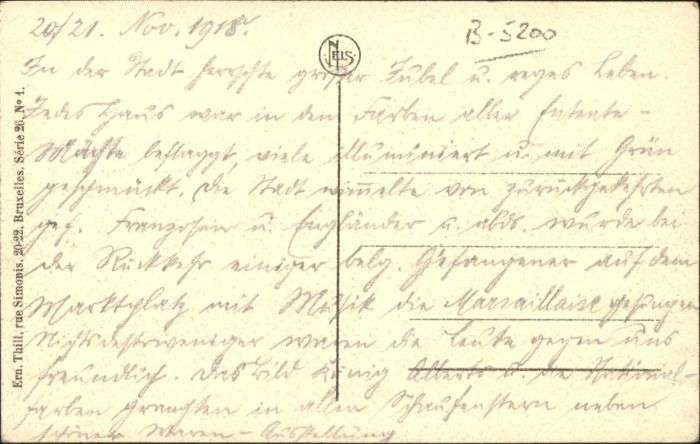 20/21. Nov. 1918.
B-5200
NELS
In der Stadt herrschte großer Jubel u. reges Leben.
Jedes Haus war in den Farben aller Entente-
Mächte beflaggt, viele illuminiert u. mit Grün
geschmückt. Die Stadt wimmelte von zurückgekehrten
gef. Franzosen u. Engländer u. abds. wurde bei
der Rückkehr einiger belg. Gefangener auf dem
Marktplatz mit Musik die Marsaillaise gesungen
Nichtsdestoweniger waren die Leute gegen uns
freundlich. Das Bild König Alberts u. die National-
farben prangten in allen Schaufenstern neben
schöner Waren-Ausstellung
Ern. Thill, rue Simonis, 20-22, Bruxelles. Série 26, No 1.